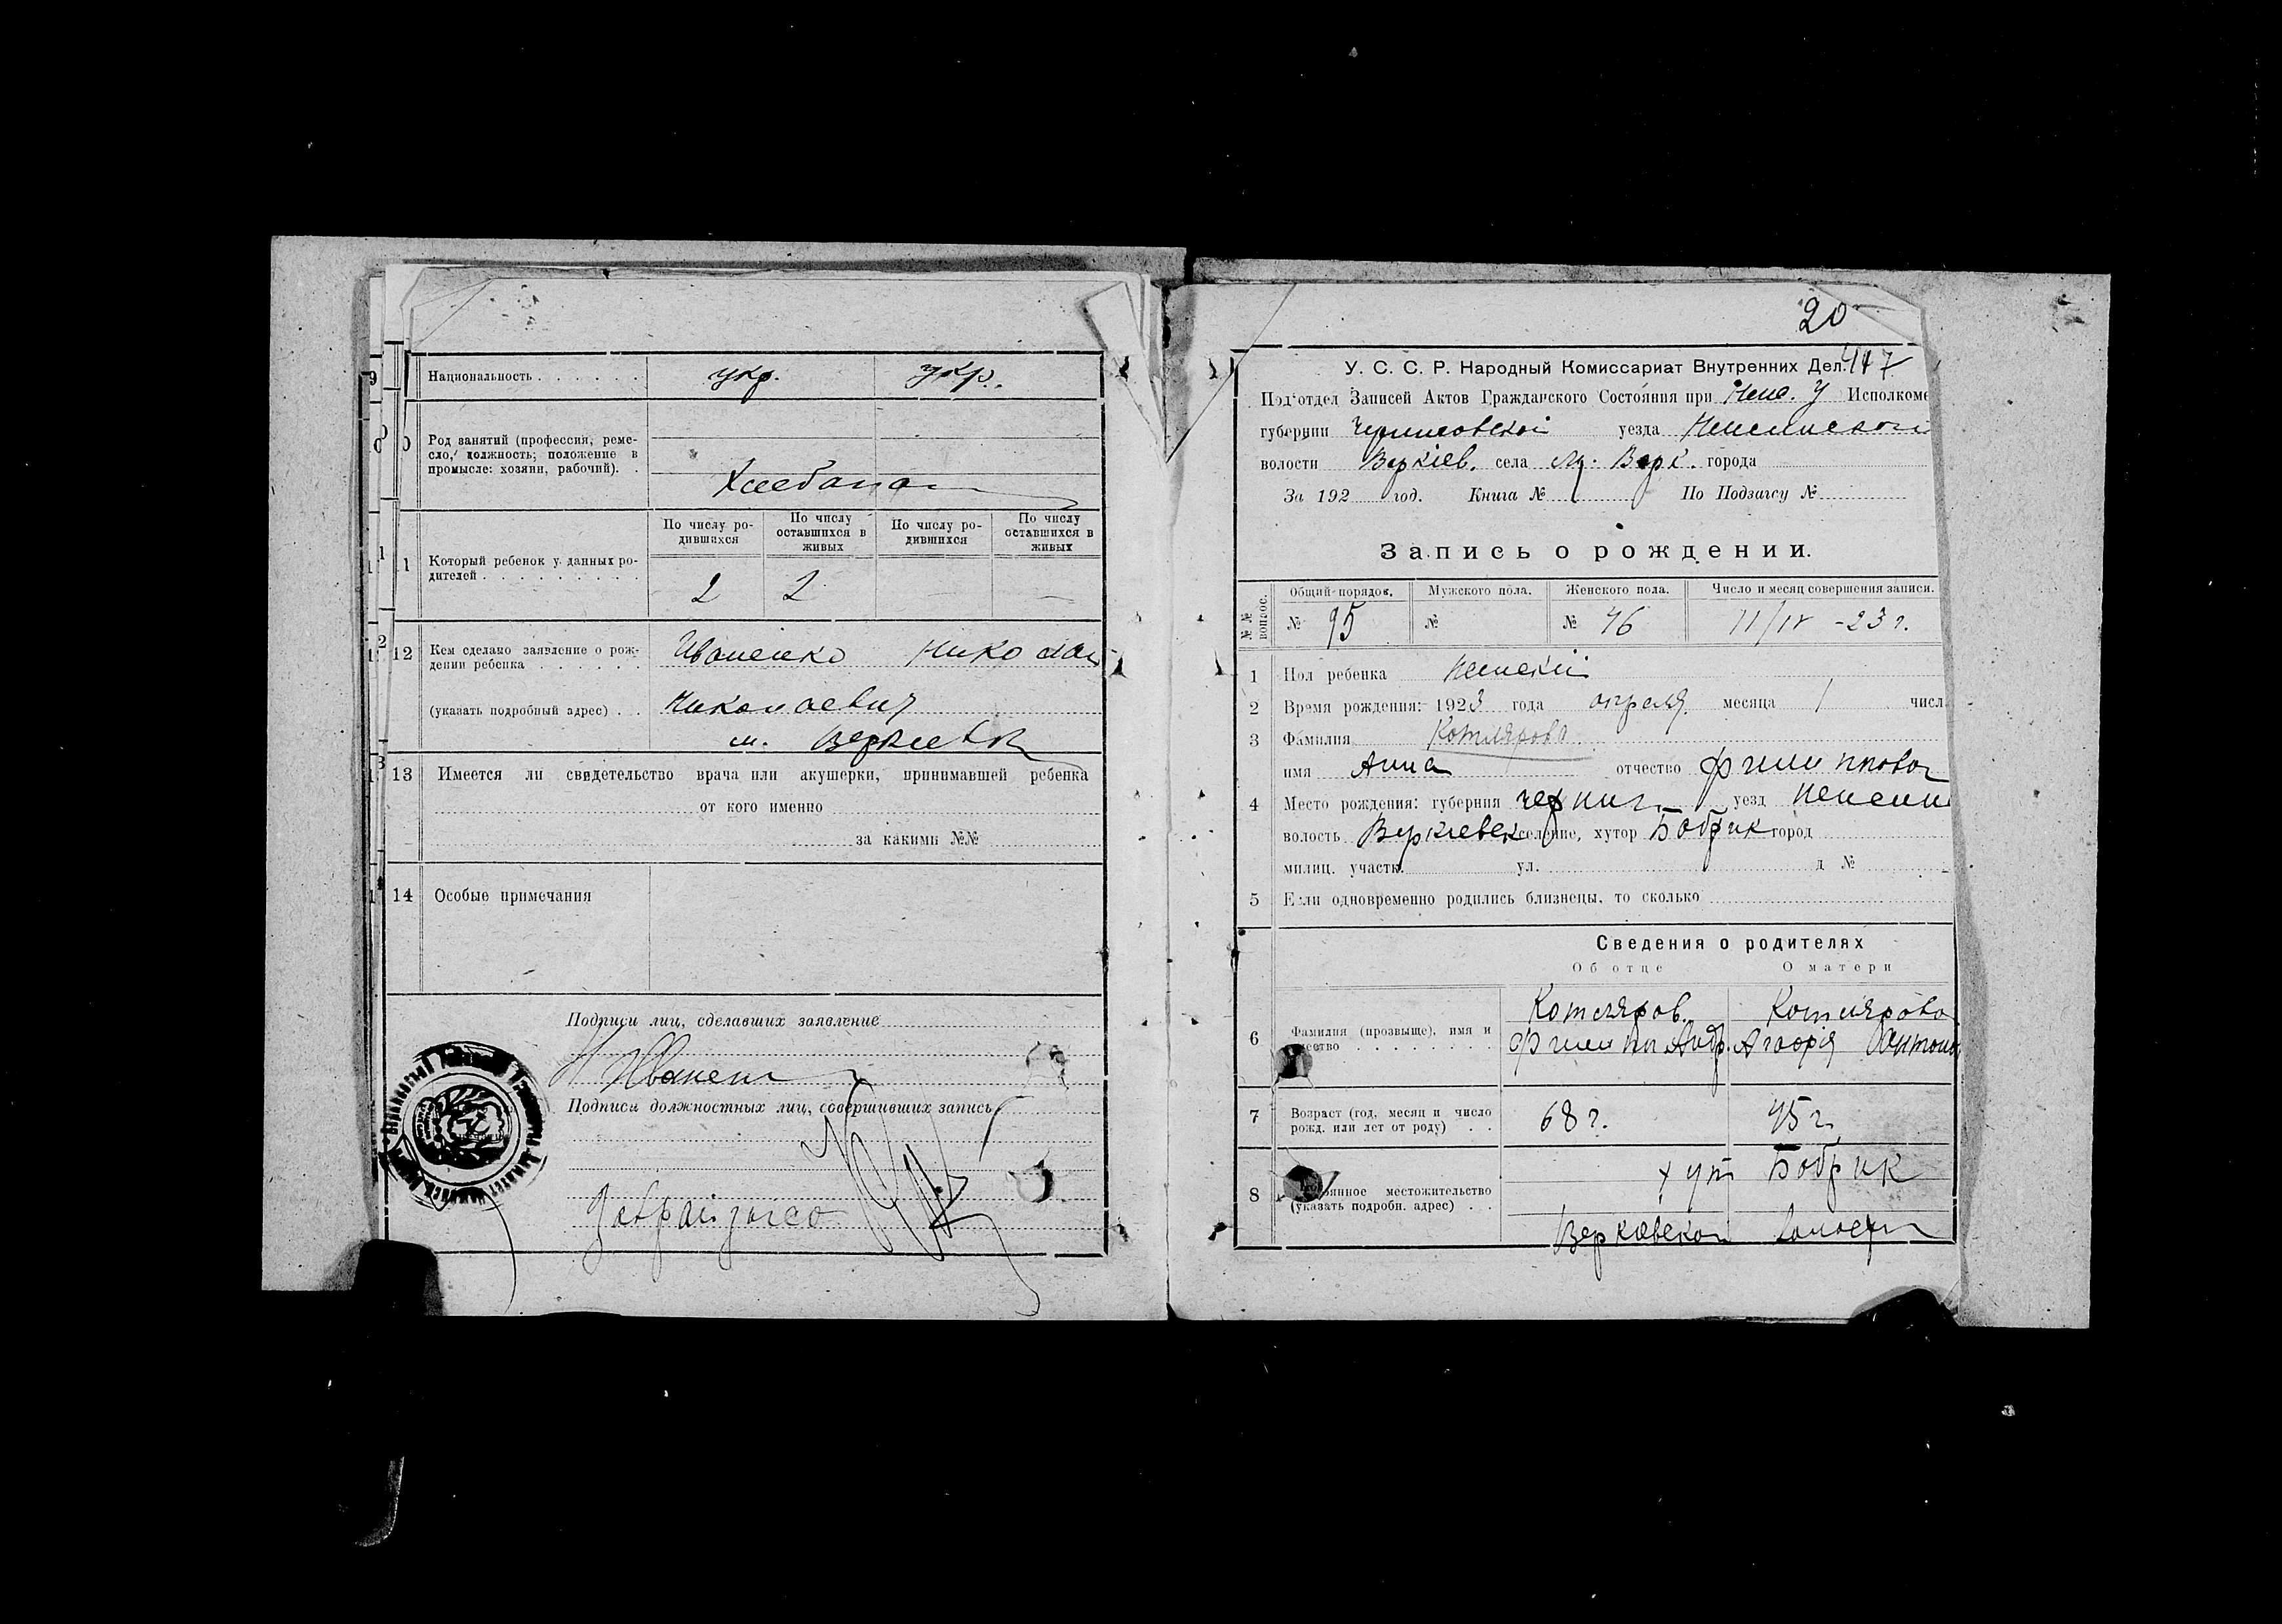 Национальность . . . . . . укр. укр.
Род занятий (профессия, реме-
сло, должность; положение в
промысле: хозяин, рабочий). .
Хлебопаш
Который ребенок у данных ро-
дителей . . . . . . . . .
По числу ро-
дившихся
По числу
оставшихся в
живых
По числу ро-
дившихся
По числу
оставшихся в
живых
2 2 — —
12 Кем сделано заявление о рож-
дении ребенка . . . . . . Иваненко Николай
(указать подробный адрес) . . Николаевич
м. Веркиевк
13 Имеется ли свидетельство врача или акушерки, принимавшей ребенка
от кого именно
за какими №№
14 Особые примечания
Подписи лиц, сделавших заявление
Н Иванен
Подписи должностных лиц, совершивших запись
20
447
У. С. С. Р. Народный Комиссариат Внутренних Дел.
Под'отдел Записей Актов Гражданского Состояния при Неж. У Исполкоме
губернии Черниговской уезда Неженской
волости Веркіев. села м. Верк. города
За 192 год. Книга № По Подзагсу №
Запись о рождении.
№№ вопрос.
Общий порядок. Мужского пола. Женского пола. Число и месяц совершения записи.
№ 95 № № 46 11/IV -23 г.
1 Пол ребенка женскій
2 Время рождения: 1923 года апреля месяца 1 числ
3 Фамилия Котлярова
имя Анна отчество Филиппова
4 Место рождения: губерния Черниг. уезд Нежен
волость Веркіевск селение, хутор Бобрик город
милиц. участк. ул. д №
5 Если одновременно родились близнецы, то сколько
Сведения о родителях
Об отце О матери
6 Фамилия (прозвыще), имя и
ество . . . . . . .
Котляров. Котлярова
Филипп Андр. Антон
7 Возраст (год, месяц и число
рожд. или лет от роду) . .
68 г. 45 г.
8 оянное местожительство
(указать подробн. адрес) . .
хут Бобрик
Веркіевской Волости